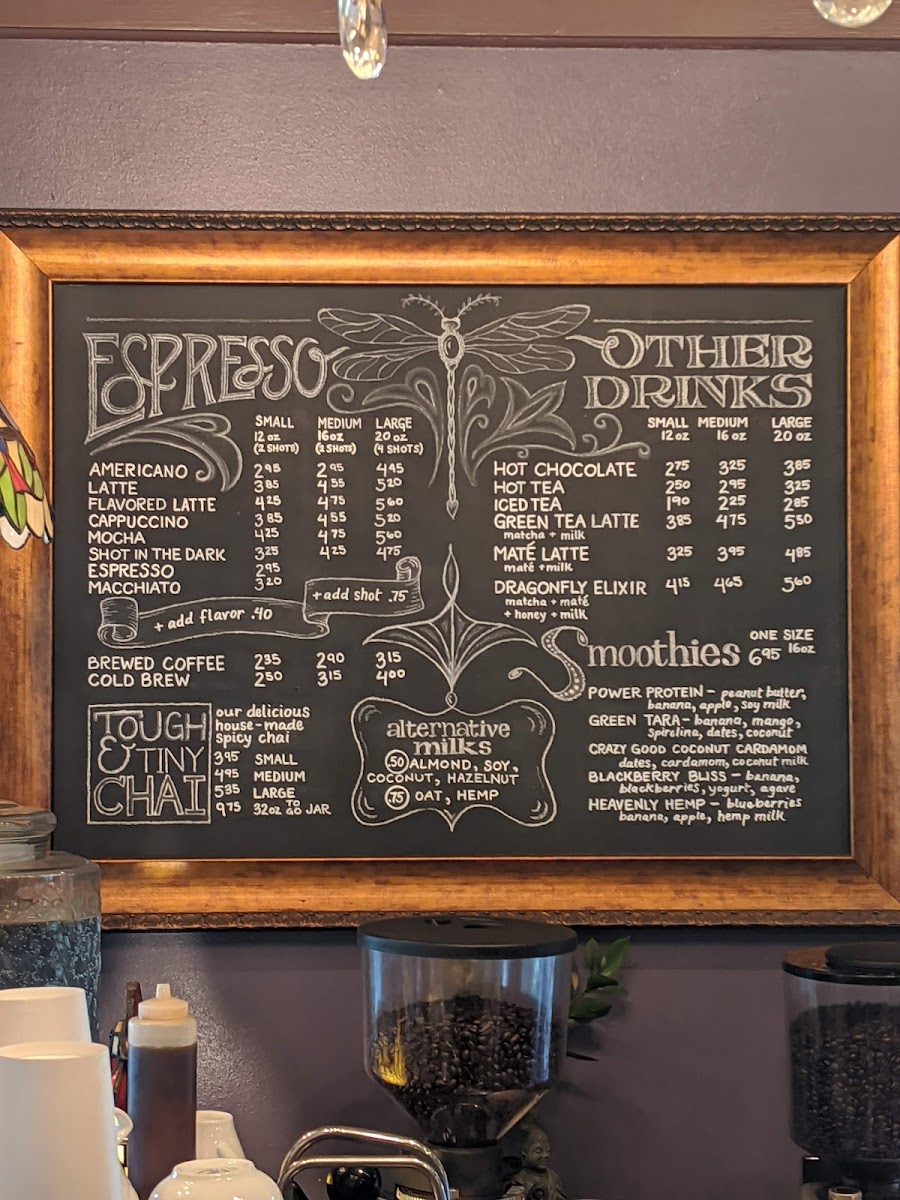 ESPRESSO
SMALL MEDIUM LARGE
12 oz 16 oz 20 oz
(2 SHOTS) (2 SHOTS) (4 SHOTS)
AMERICANO 2.95 2.95 4.45
LATTE 3.85 4.55 5.20
FLAVORED LATTE 4.25 4.75 5.60
CAPPUCCINO 3.85 4.55 5.20
MOCHA 4.25 4.75 5.60
SHOT IN THE DARK 3.25 4.25 4.75
ESPRESSO 2.95
MACCHIATO 3.20
+ add flavor .40
+ add shot .75
BREWED COFFEE 2.35 2.90 3.15
COLD BREW 2.50 3.15 4.00
TOUGH
& TINY
CHAI
our delicious
house-made
spicy chai
3.95 SMALL
4.95 MEDIUM
5.35 LARGE
9.75 32oz TO GO JAR
alternative
milks
.50 ALMOND, SOY,
COCONUT, HAZELNUT
.75 OAT, HEMP
OTHER
DRINKS
SMALL MEDIUM LARGE
12 oz 16 oz 20 oz
HOT CHOCOLATE 2.75 3.25 3.85
HOT TEA 2.50 2.95 3.25
ICED TEA 1.90 2.25 2.85
GREEN TEA LATTE 3.85 4.75 5.50
matcha + milk
MATÉ LATTE 3.25 3.95 4.85
maté + milk
DRAGONFLY ELIXIR 4.15 4.65 5.60
matcha + maté
+ honey + milk
Smoothies ONE SIZE
6.95 16oz
POWER PROTEIN - peanut butter,
banana, apple, soy milk
GREEN TARA - banana, mango,
spirelina, dates, coconut
CRAZY GOOD COCONUT CARDAMOM
dates, cardamom, coconut milk
BLACKBERRY BLISS - banana,
blackberries, yogurt, agave
HEAVENLY HEMP - blueberries
banana, apple, hemp milk